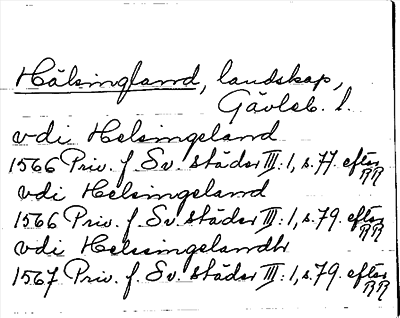 Hälsingland, landskap,
Gävleb. l.
vdi Helsingeland
1566 Priv. f. Sv. städer III:1, s. 77. efter RR
vdi Helsingeland
1566 Priv. f. Sv. städer III:1, s. 79. efter RR
vdi Helssingelandh
1567 Priv. f. Sv. städer III:1, s. 79. efter RR